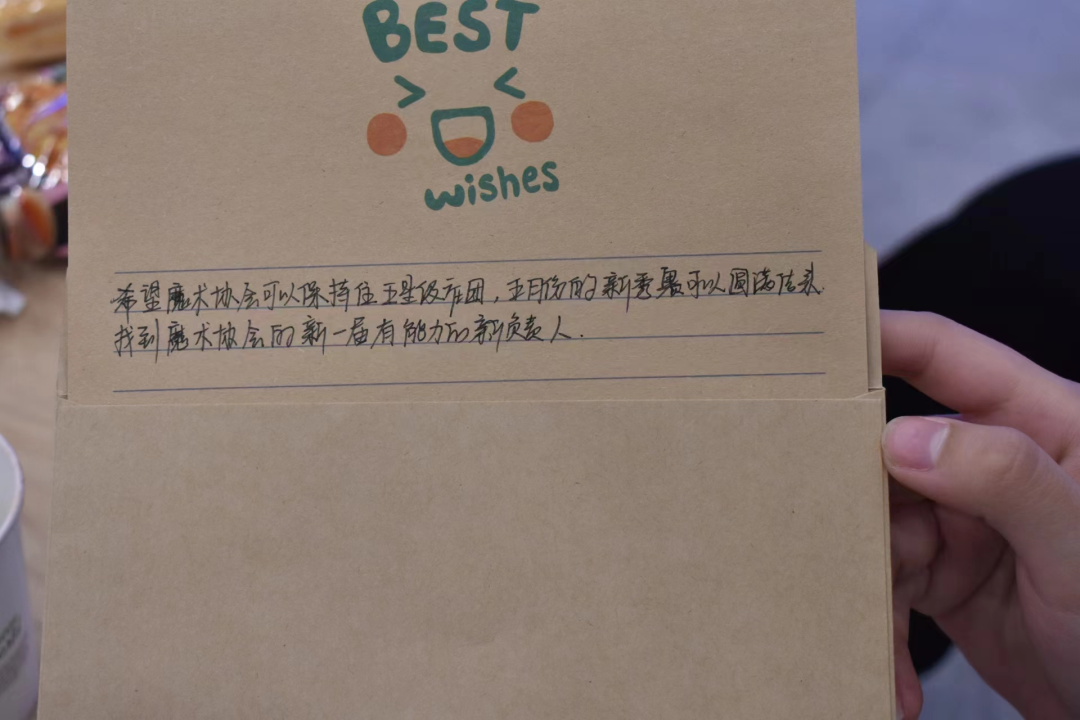 BEST
wishes
希望魔术协会可以保持住五星级社团，五月份的新委员可以圆满结束
找到魔术协会的新一届有能力的新负责人.